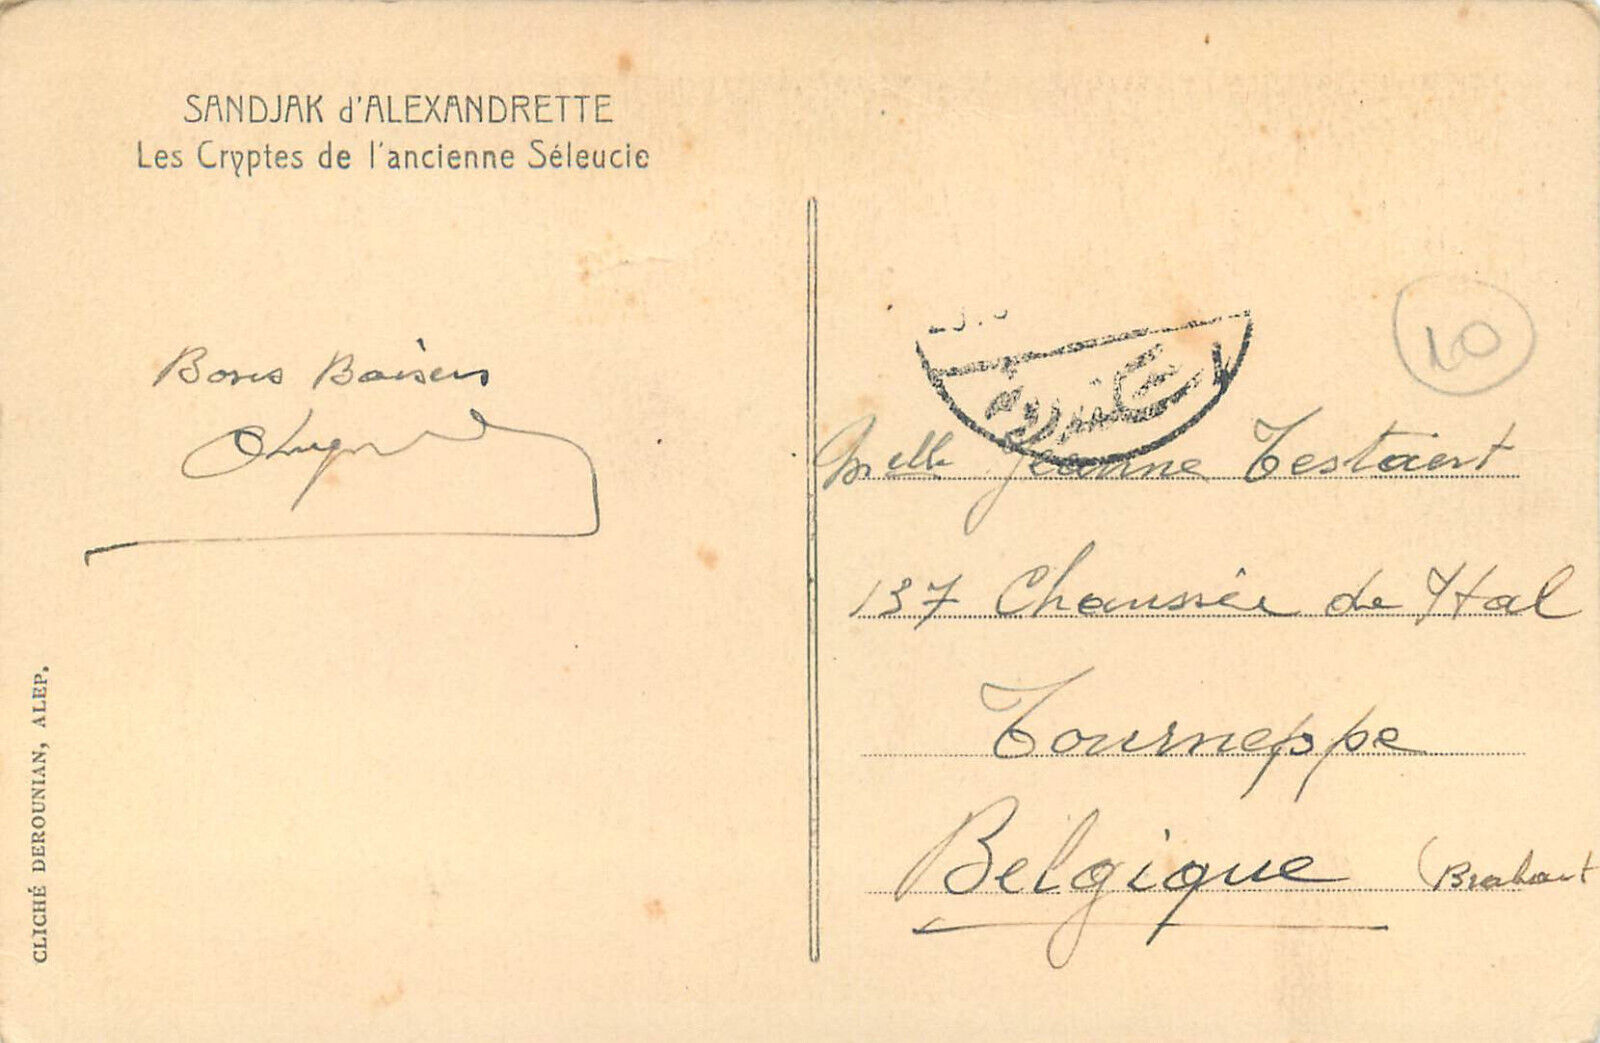 SANDJAK d'ALEXANDRETTE
Les Cryptes de l'ancienne Séleucie
Bons Baisers
CLICHÉ DEROUNIAN, ALEP.
10
Melle Jeanne Testaert
137 Chaussée de Hal
Tourneppe
Belgique (Brabant